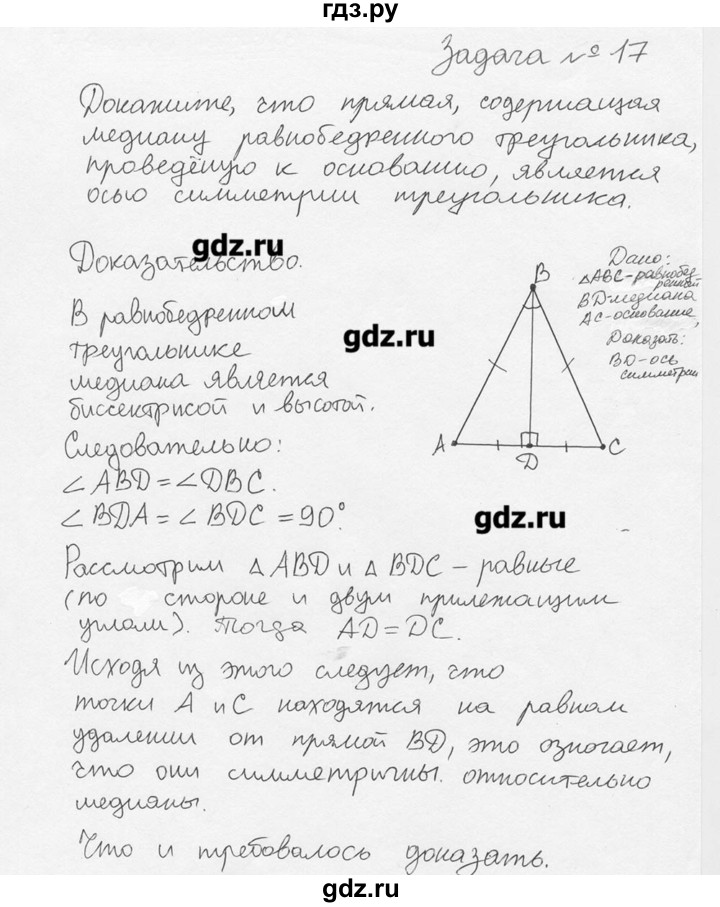 гдз.ру
Задача № 17
Докажите, что прямая, содержащая
медиану равнобедренного треугольника,
проведёную к основанию, является
осью симметрии треугольника.
gdz.ru
Доказательство.
Дано:
△ABC-равнобед-
ренный
BD-медиана
AC-основание,
Доказать:
BD-ось
симметрии
B
A
D
C
В равнобедренном
gdz.ru
треугольнике
медиана является
биссектрисой и высотой.
Следовательно:
∠ABD=∠DBC.
∠BDA=∠BDC=90°.
gdz.ru
Рассмотрим △ABD и △BDC - равные
(по стороне и двум прилежащим
углам). Тогда AD=DC.
Исходя из этого следует, что
точки A и C находятся на равном
удалении от прямой BD, это означает,
что они симметричны. относительно
медианы.
Что и требовалось доказать.
gdz.ru